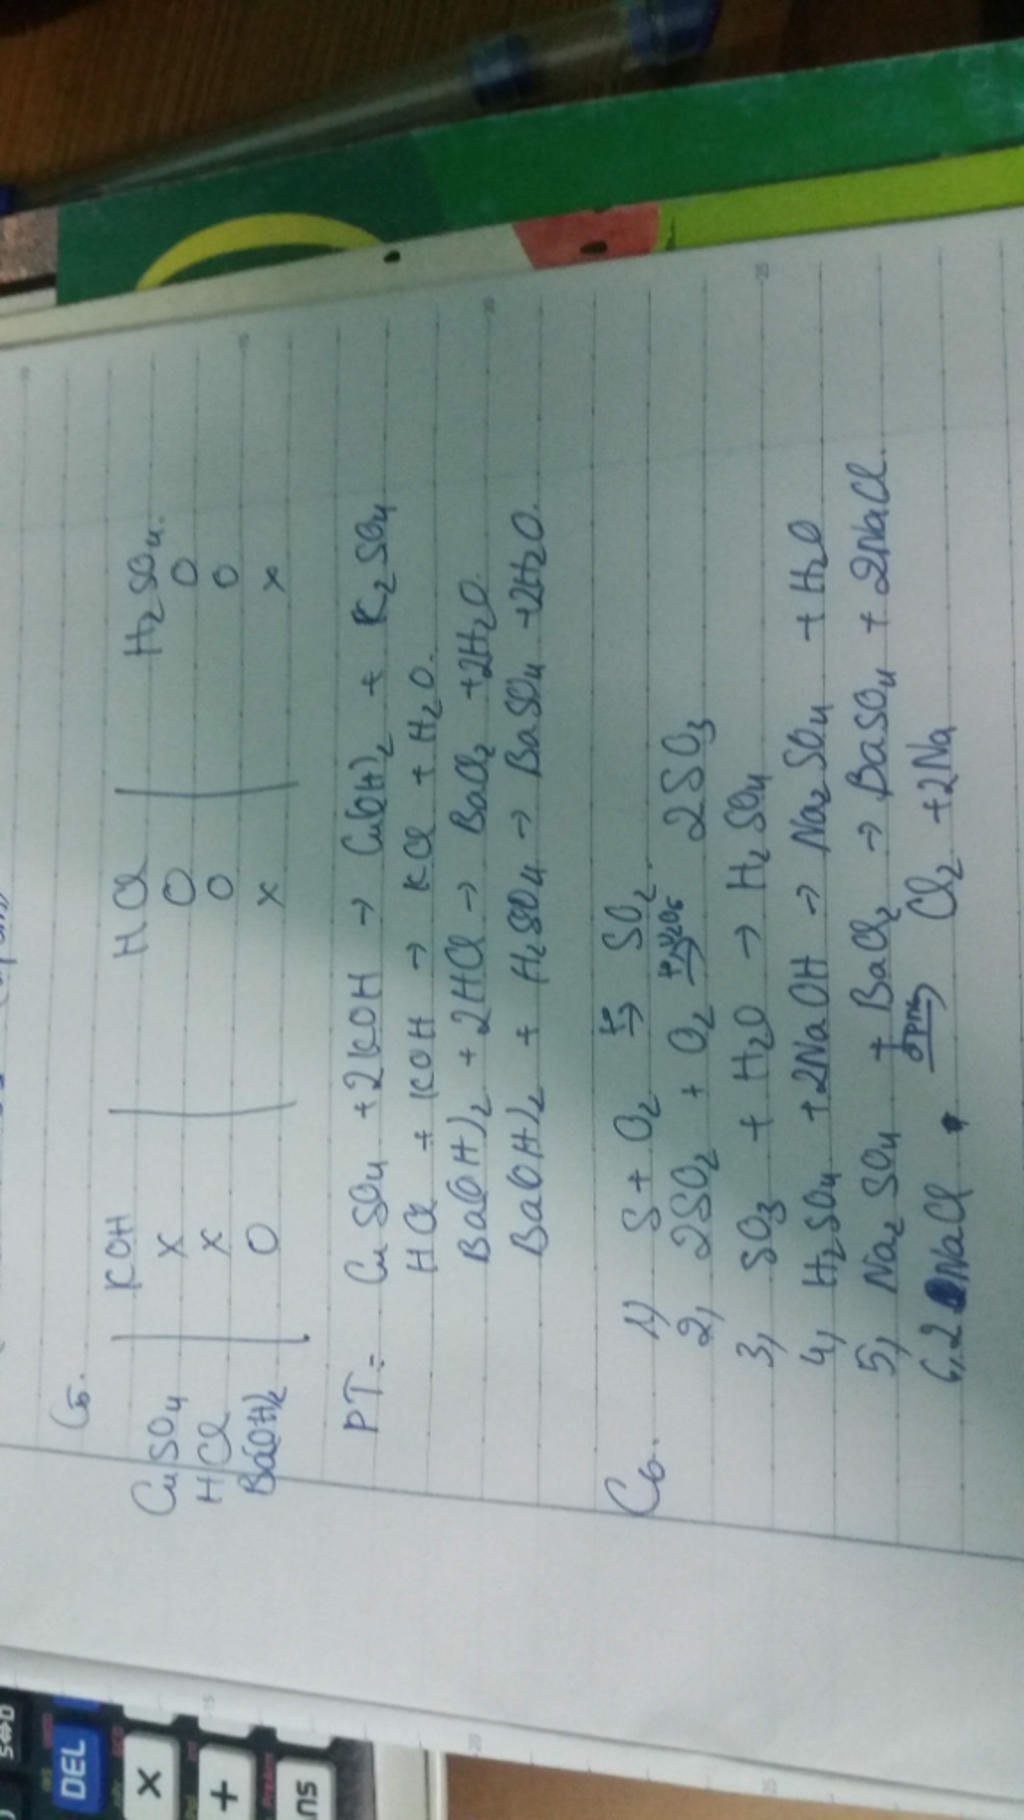 C5.
KOH | HCl | H2SO4.
CuSO4 | X | O | O
HCl | X | O | O
Ba(OH)2 | O | X | X
PT: CuSO4 + 2KOH → Cu(OH)2 + K2SO4
HCl + KOH → KCl + H2O.
Ba(OH)2 + 2HCl → BaCl2 + 2H2O
Ba(OH)2 + H2SO4 → BaSO4 + 2H2O.
C6.
1) S + O2 →(t°) SO2.
2, 2SO2 + O2 →(t°, V2O5) 2SO3
3, SO3 + H2O → H2SO4
4, H2SO4 + 2NaOH → Na2SO4 + H2O
5, Na2SO4 + BaCl2 → BaSO4 + 2NaCl.
6, 2NaCl →(đpnc) Cl2 + 2Na
S⇔D
DEL
×
+
ns